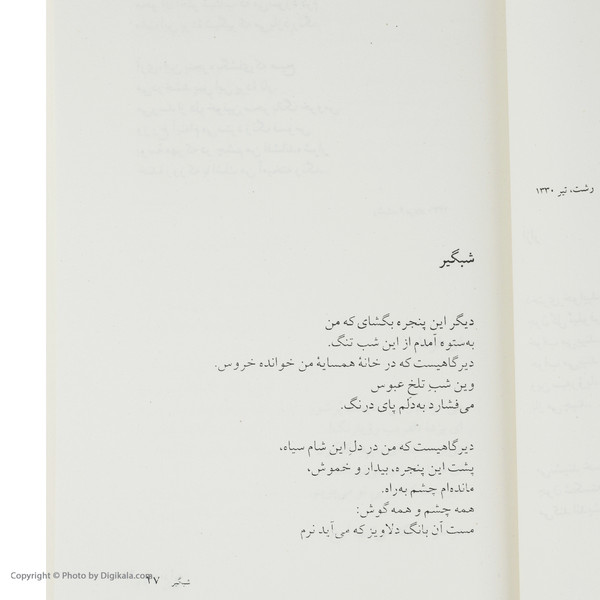 رشت، تیر ۱۳۳۰
شبگیر
دیگر این پنجره بگشای که من
به‌ستوه آمدم از این شب تنگ.
دیرگاهیست که در خانهٔ همسایهٔ من خوانده خروس.
وین شبِ تلخِ عبوس
می‌فشارد به‌دلم پای درنگ.
دیرگاهیست که من در دلِ این شام سیاه،
پشت این پنجره، بیدار و خموش،
مانده‌ام چشم به‌راه.
همه چشم و همه گوش:
مست آن بانگ دلاویز که می‌آید نرم
شبگیر ۲۷
Copyright © Photo by Digikala.com